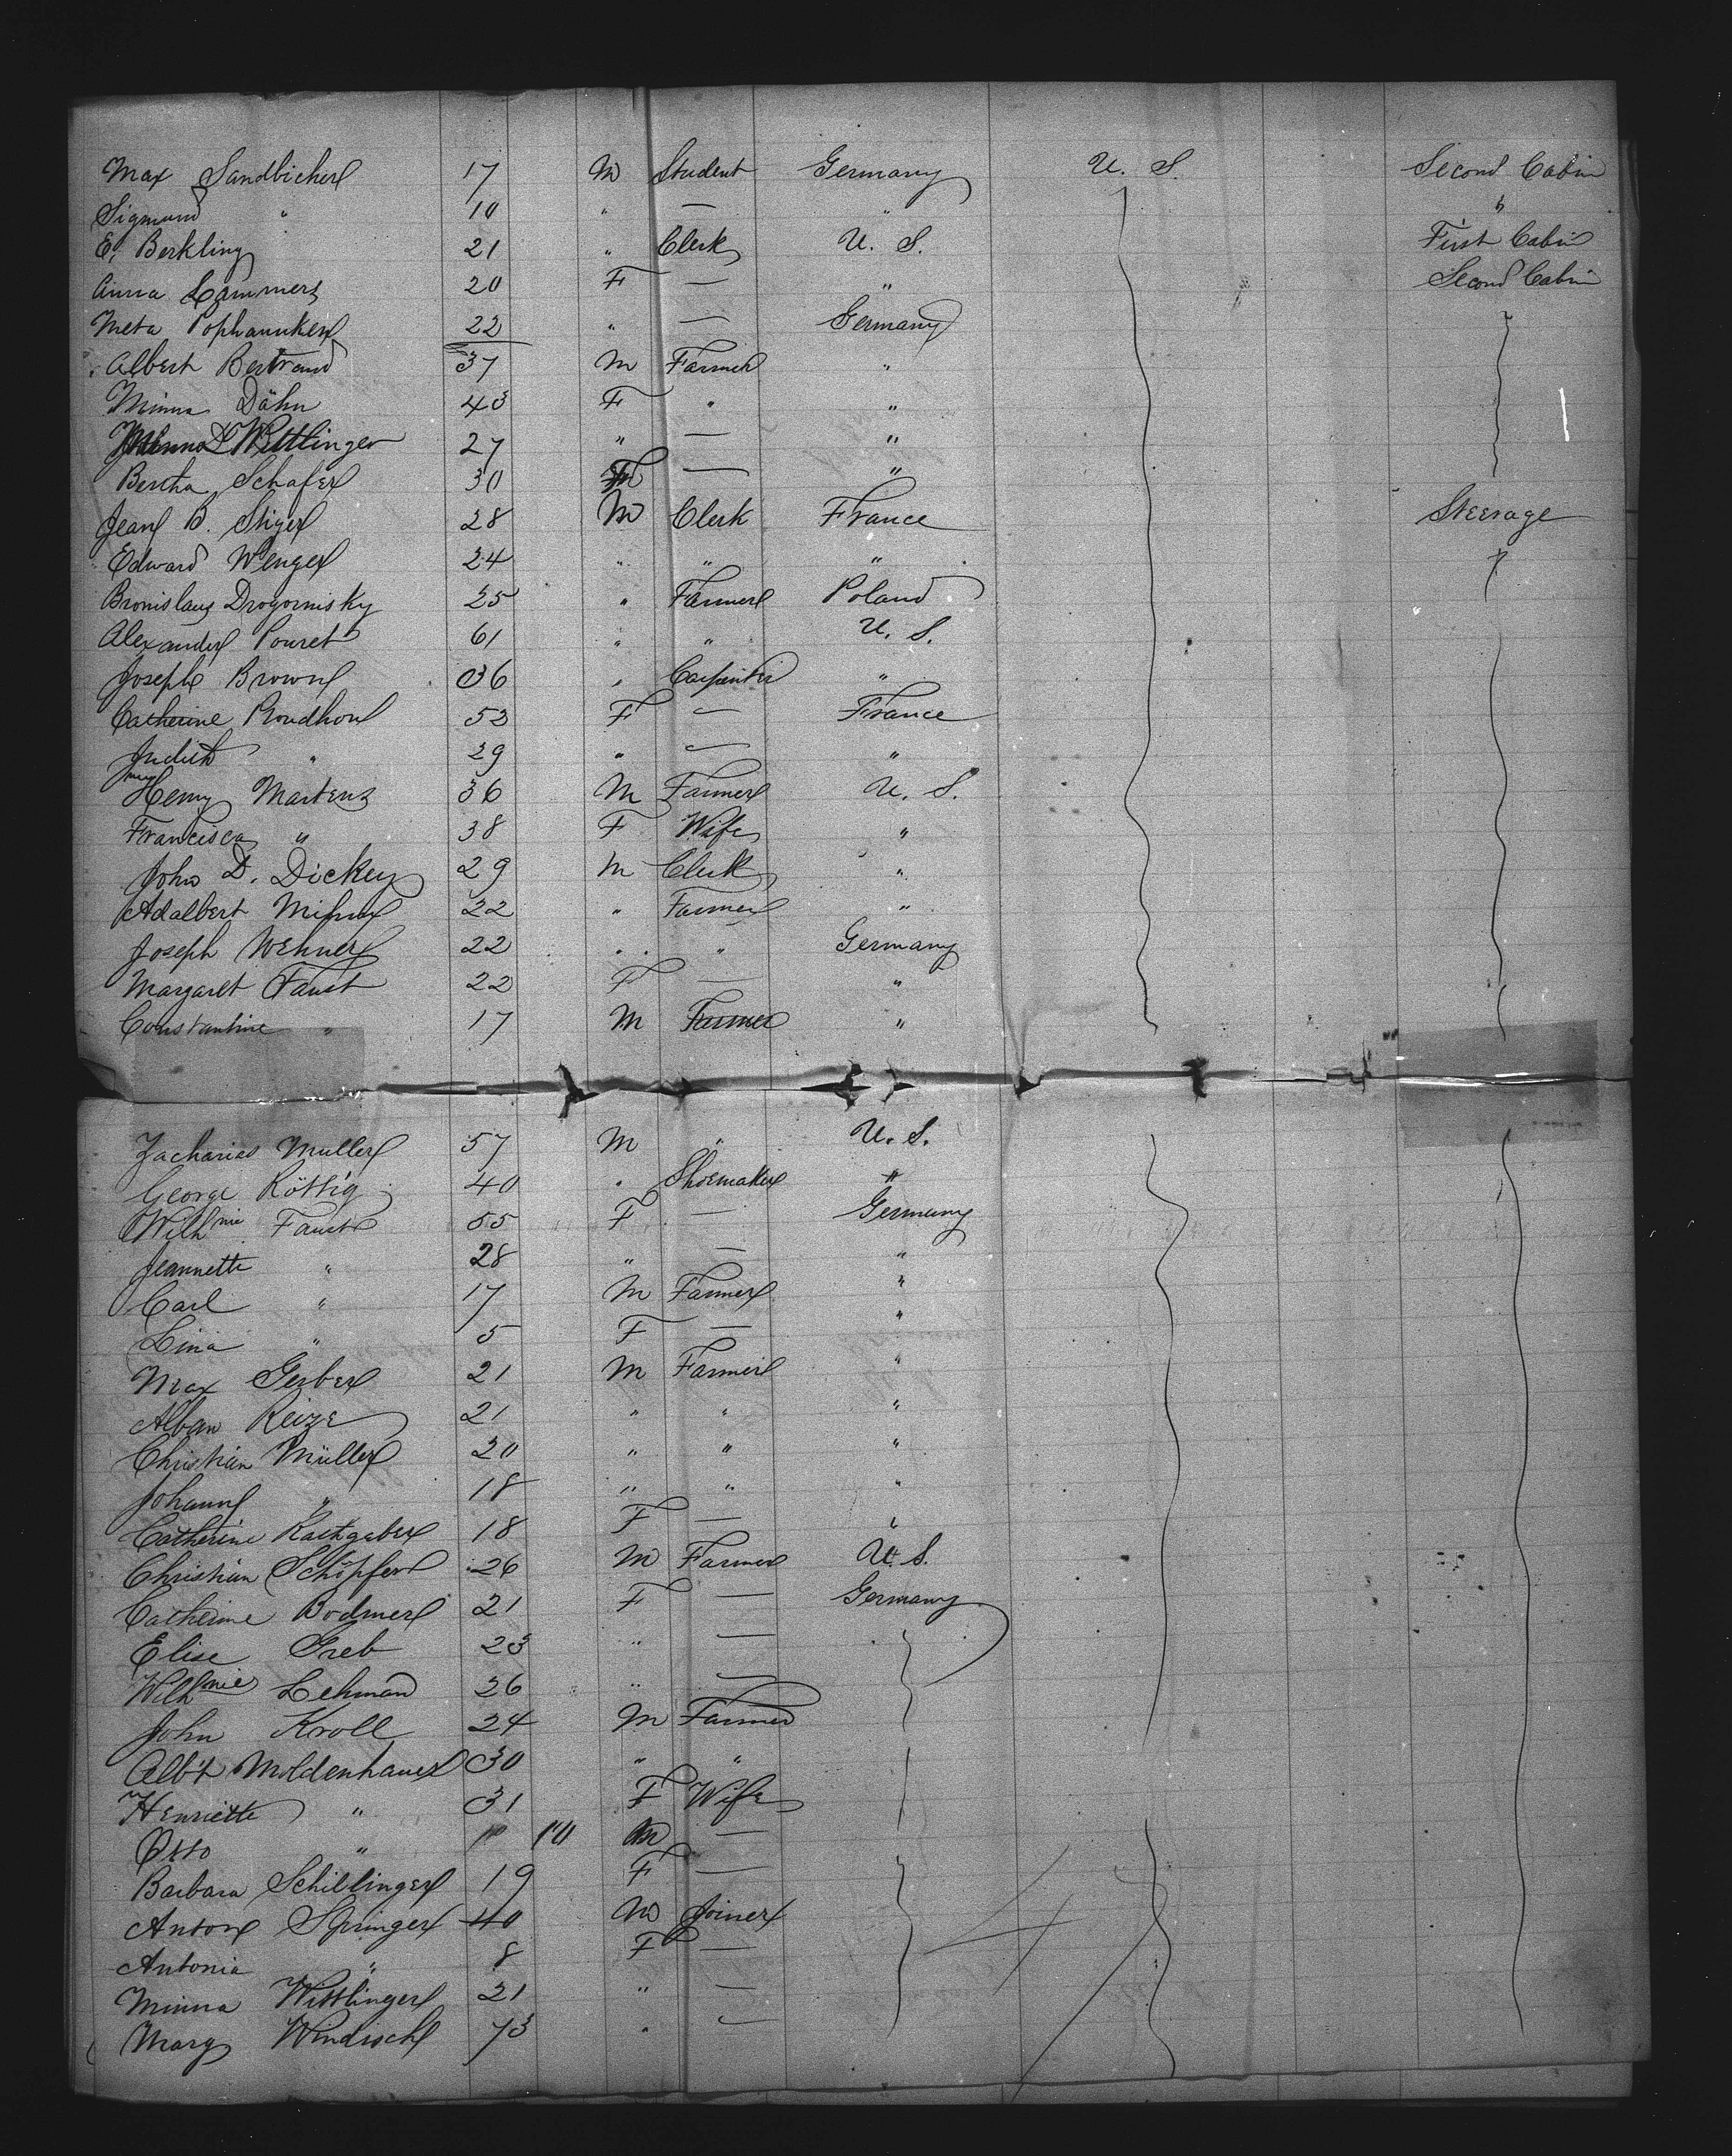 Max Sandbicher 17 M Student Germany U. S. Second Cabin
Sigmund " 10 " — " "
E. Berkling 21 " Clerk U. S. First Cabin
Anna Lammers 20 F — " Second Cabin
Meta Pophanken 22 " — Germany
Albert Bertrand 37 M Farmer "
Minna Dähn 43 F " "
Wittlinger 27 " — "
Bertha Schafer 30 F — "
Jean B. Stiger 28 M Clerk France Steerage
Edward Wenger 24 " " "
Bronislaus Drogornisky 25 " Farmer Poland
Alexander Pouret 61 " " U. S.
Joseph Brown 36 " Carpenter "
Catherine Proudhon 52 F — France
Judith " 29 " — "
Henry Martens 36 M Farmer U. S.
Francisca " 38 F Wife "
John D. Dickey 29 M Clerk "
Adalbert 22 " Farmer "
Joseph Wehner 22 " " Germany
Margaret Faust 22 F — "
Constantine " 17 M Farmer "
Zacharias Muller 57 M " U. S.
George Röttig 40 " Shoemaker "
Wilhmie Faust 55 F — Germany
Jeannette " 28 " — "
Carl " 17 M Farmer "
Lina " 5 F — "
Max Gerber 21 M Farmer "
Alban Reize 21 " " "
Christian Müller 20 " " "
Johann " 18 " " "
Catherine Rathgaber 18 F — "
Christian Schöpfer 26 M Farmer U. S.
Catherine Bodmer 21 F — Germany
Elise Greb 23 " —
Wilhmie Lehman 26 " —
John Kroll 24 M Farmer
Albt Moldenhauer 30 " "
Henriette " 31 F Wife
Otto " 10 M —
Barbara Schillinger 19 F —
Anton Springer 40 M Joiner
Antonia " 8 F —
Minna Wittlinger 21 " —
Marg Windisch 73 " —